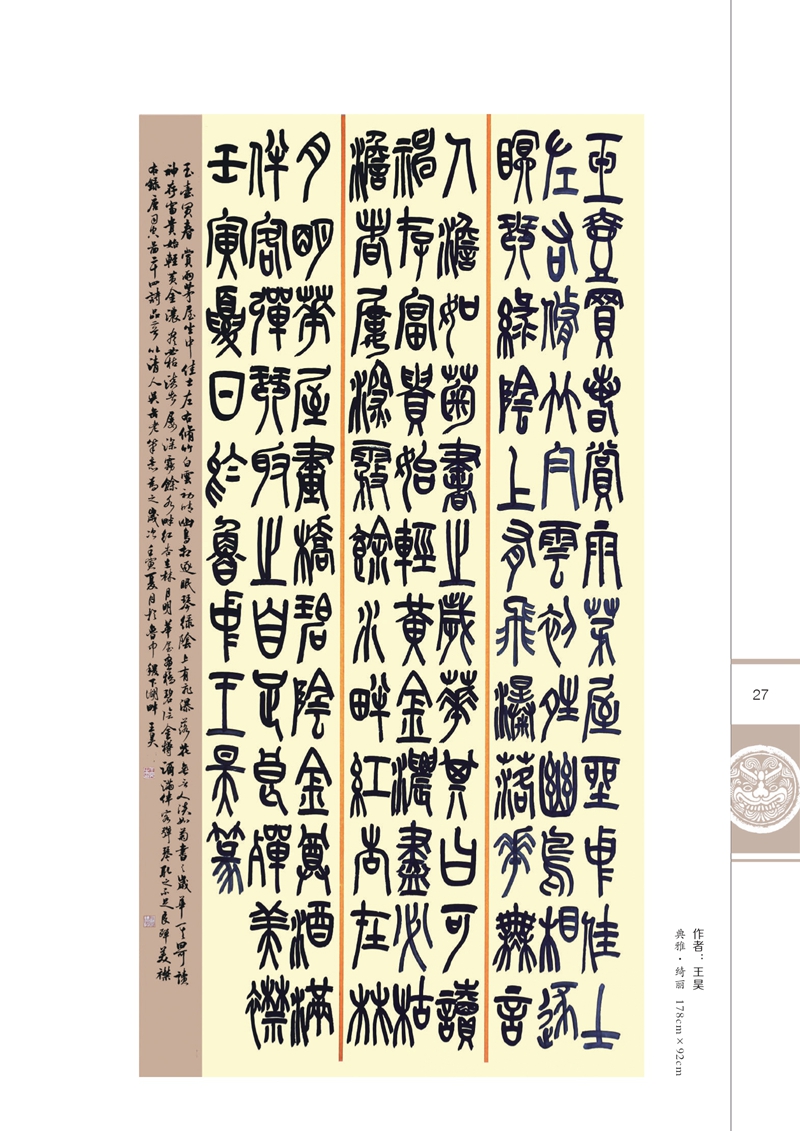 玉壺買春賞雨茅屋坐中佳士
左右脩竹白雲初晴幽鳥相逐
眠琴綠陰上有飛瀑落華無言
人澹如菊書之歲華其曰可讀
神存富貴始輕黃金濃盡必枯
澹者屢深霧餘水畔紅杏在林
月明華屋畫橋碧陰金尊酒滿
伴客彈琴取之自足良殫美襟
壬寅夏日於魯中王昊篆
玉壺買春賞雨茅屋坐中佳士左右脩竹白雲初晴幽鳥相逐眠琴綠陰上有飛瀑落花無言人淡如菊書之歲華其曰可讀
神存富貴始輕黃金濃盡必枯淡者屢深霧餘水畔紅杏在林月明華屋畫橋碧陰金樽酒滿伴客彈琴取之自足良殫美襟
右錄唐司空圖二十四詩品以清人吳老筆意為之歲次壬寅夏月於魯中稷下湖畔王昊
27
作者：王昊
典雅·绮丽 178cm×92cm